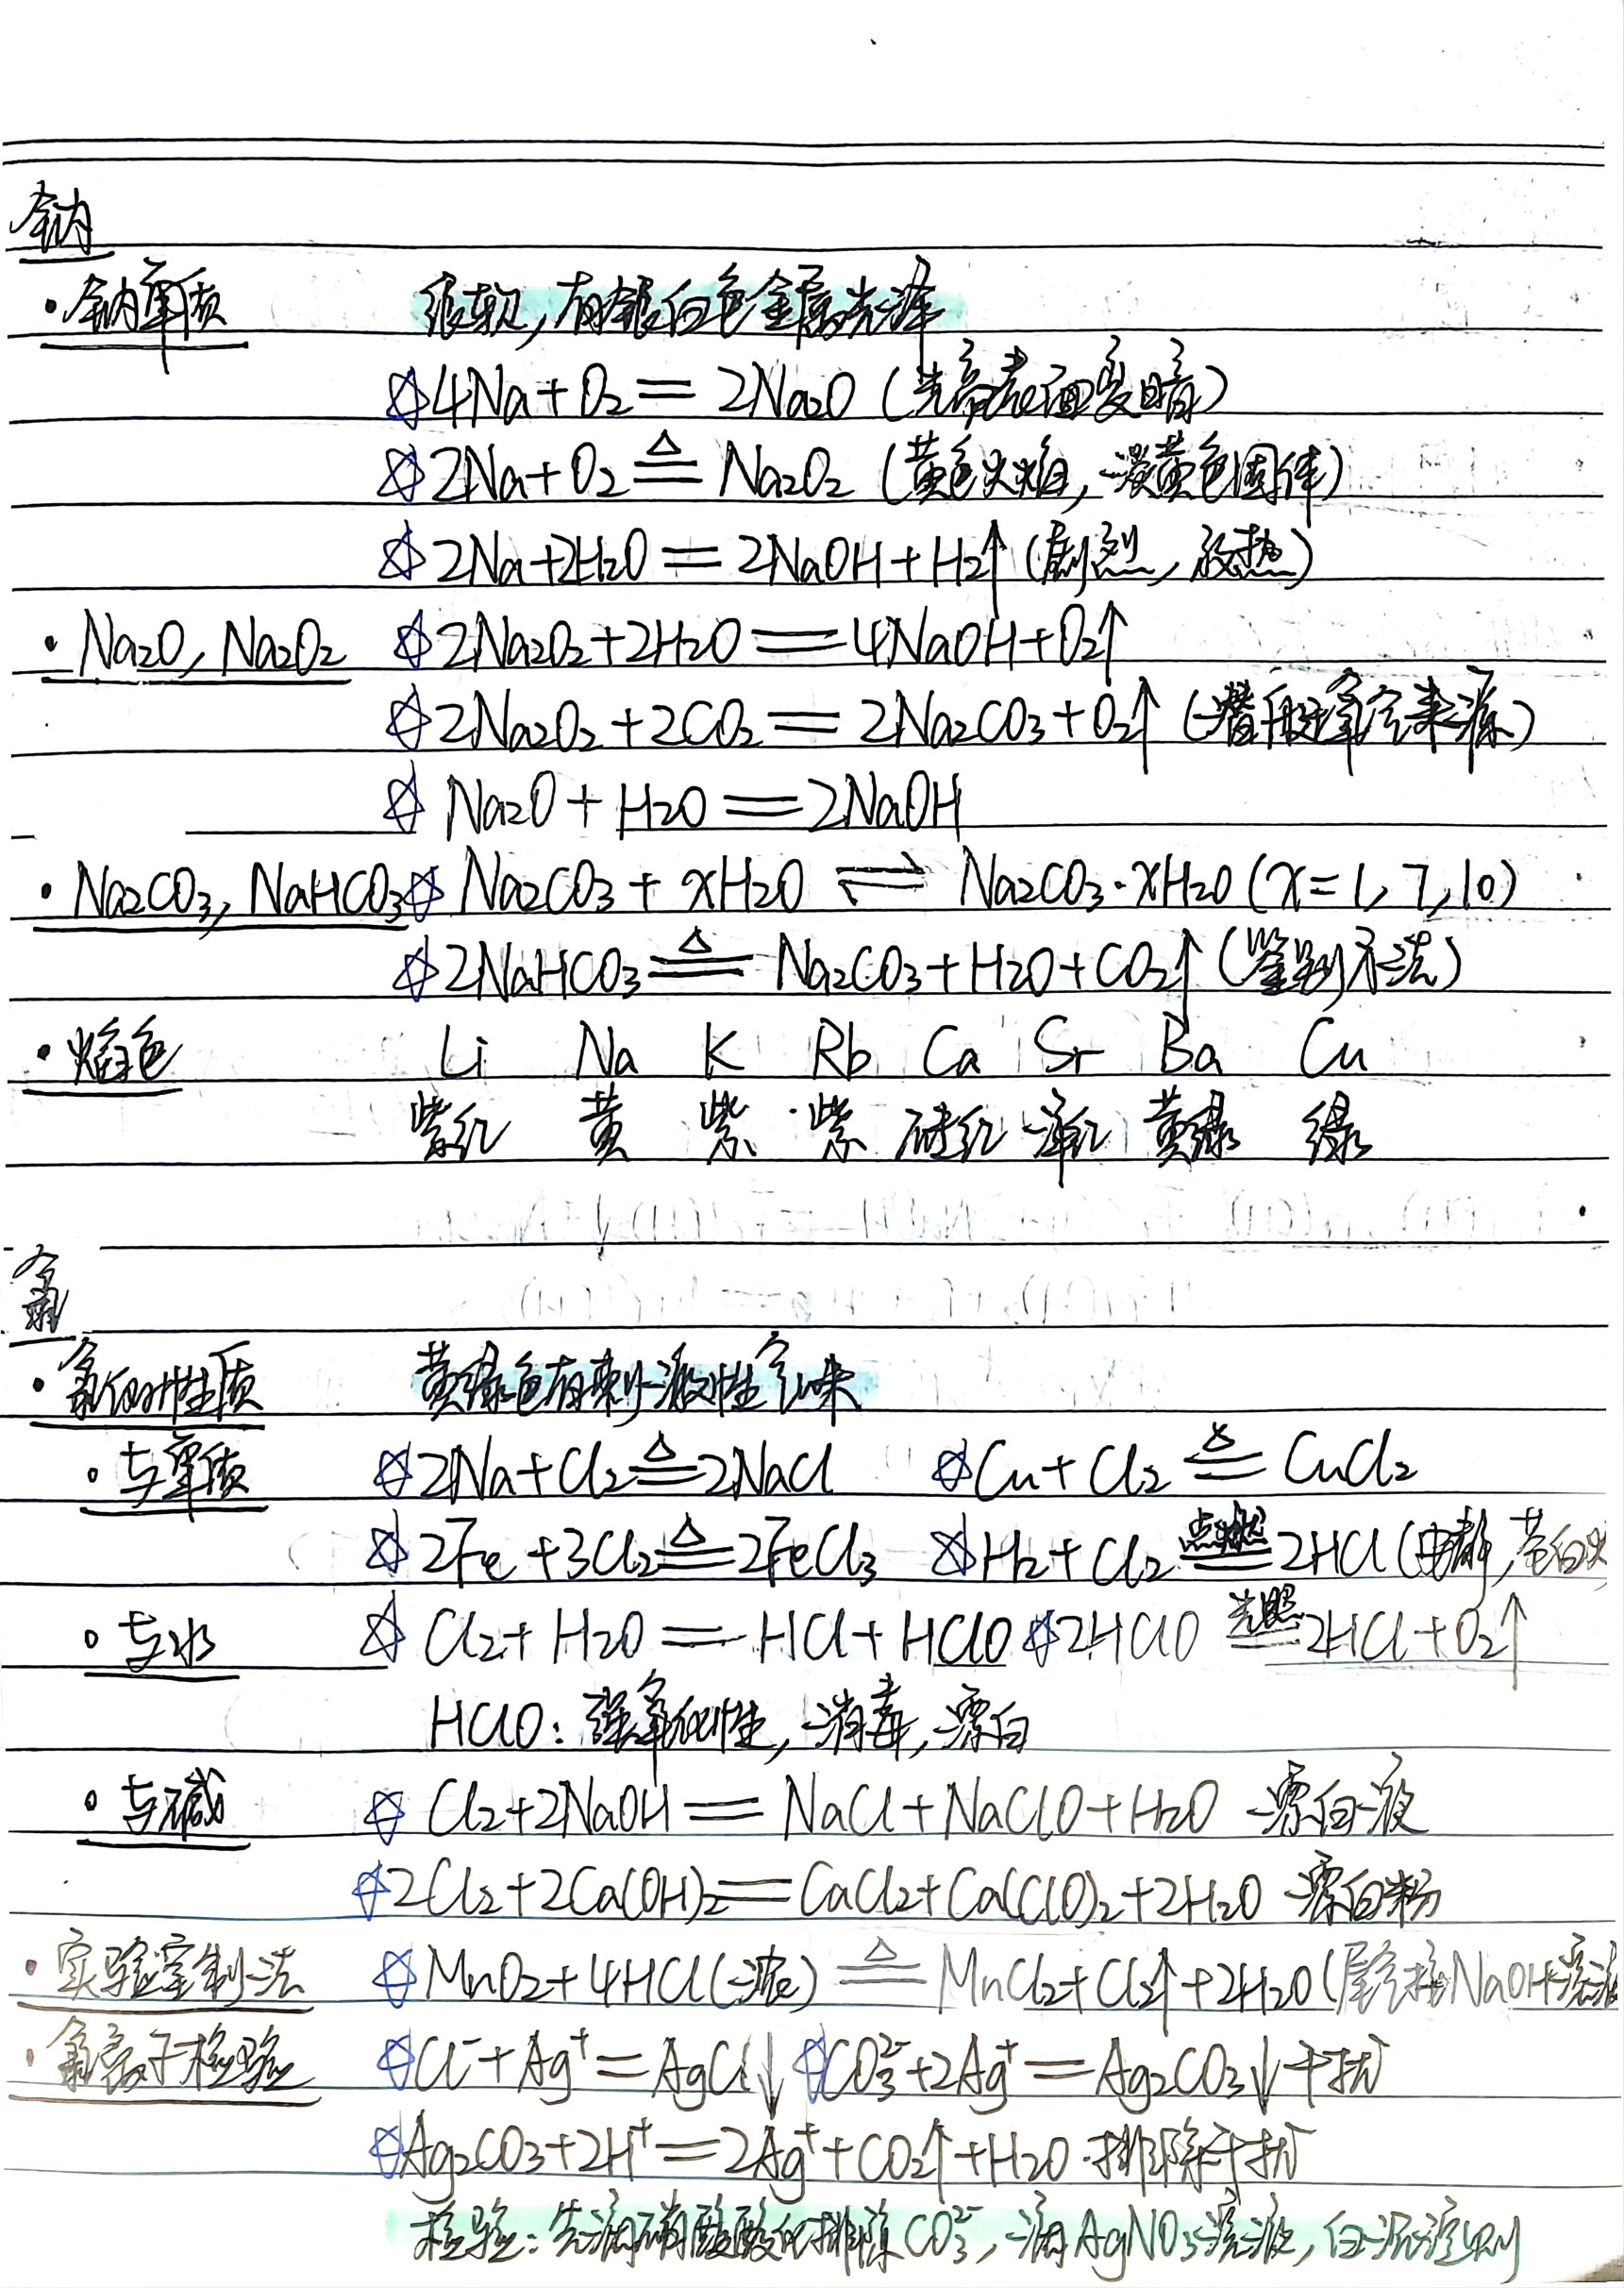 钠
·钠单质 很软,有银白色金属光泽
☆4Na+O₂=2Na₂O(光亮表面变暗)
☆2Na+O₂≜Na₂O₂(黄色火焰,淡黄色固体)
☆2Na+2H₂O=2NaOH+H₂↑(剧烈,放热)
·Na₂O,Na₂O₂ ☆2Na₂O₂+2H₂O=4NaOH+O₂↑
☆2Na₂O₂+2CO₂=2Na₂CO₃+O₂↑(潜艇氧气来源)
☆Na₂O+H₂O=2NaOH
·Na₂CO₃,NaHCO₃ ☆Na₂CO₃+xH₂O⇌Na₂CO₃·xH₂O(x=1,7,10)
☆2NaHCO₃≜Na₂CO₃+H₂O+CO₂↑(鉴别方法)
·焰色 Li Na K Rb Ca Sr Ba Cu
紫红 黄 紫 紫 砖红 洋红 黄绿 绿
氯
·氯的性质 黄绿色有刺激性气味
·与单质 ☆2Na+Cl₂≜2NaCl ☆Cu+Cl₂≜CuCl₂
☆2Fe+3Cl₂≜2FeCl₃ ☆H₂+Cl₂ 点燃= 2HCl(安静,苍白火
·与水 ☆Cl₂+H₂O=HCl+HClO ☆2HClO 光照= 2HCl+O₂↑
HClO:强氧化性,消毒,漂白
·与碱 ☆Cl₂+2NaOH=NaCl+NaClO+H₂O 漂白液
☆2Cl₂+2Ca(OH)₂=CaCl₂+Ca(ClO)₂+2H₂O 漂白粉
·实验室制法 ☆MnO₂+4HCl(浓)≜MnCl₂+Cl₂↑+2H₂O(尾气接NaOH溶液
·氯离子检验 ☆Cl⁻+Ag⁺=AgCl↓ ☆CO₃²⁻+2Ag⁺=Ag₂CO₃↓干扰
☆Ag₂CO₃+2H⁺=2Ag⁺+CO₂↑+H₂O·排除干扰
检验:先滴硝酸酸化排除CO₃²⁻,滴AgNO₃溶液,白沉淀则